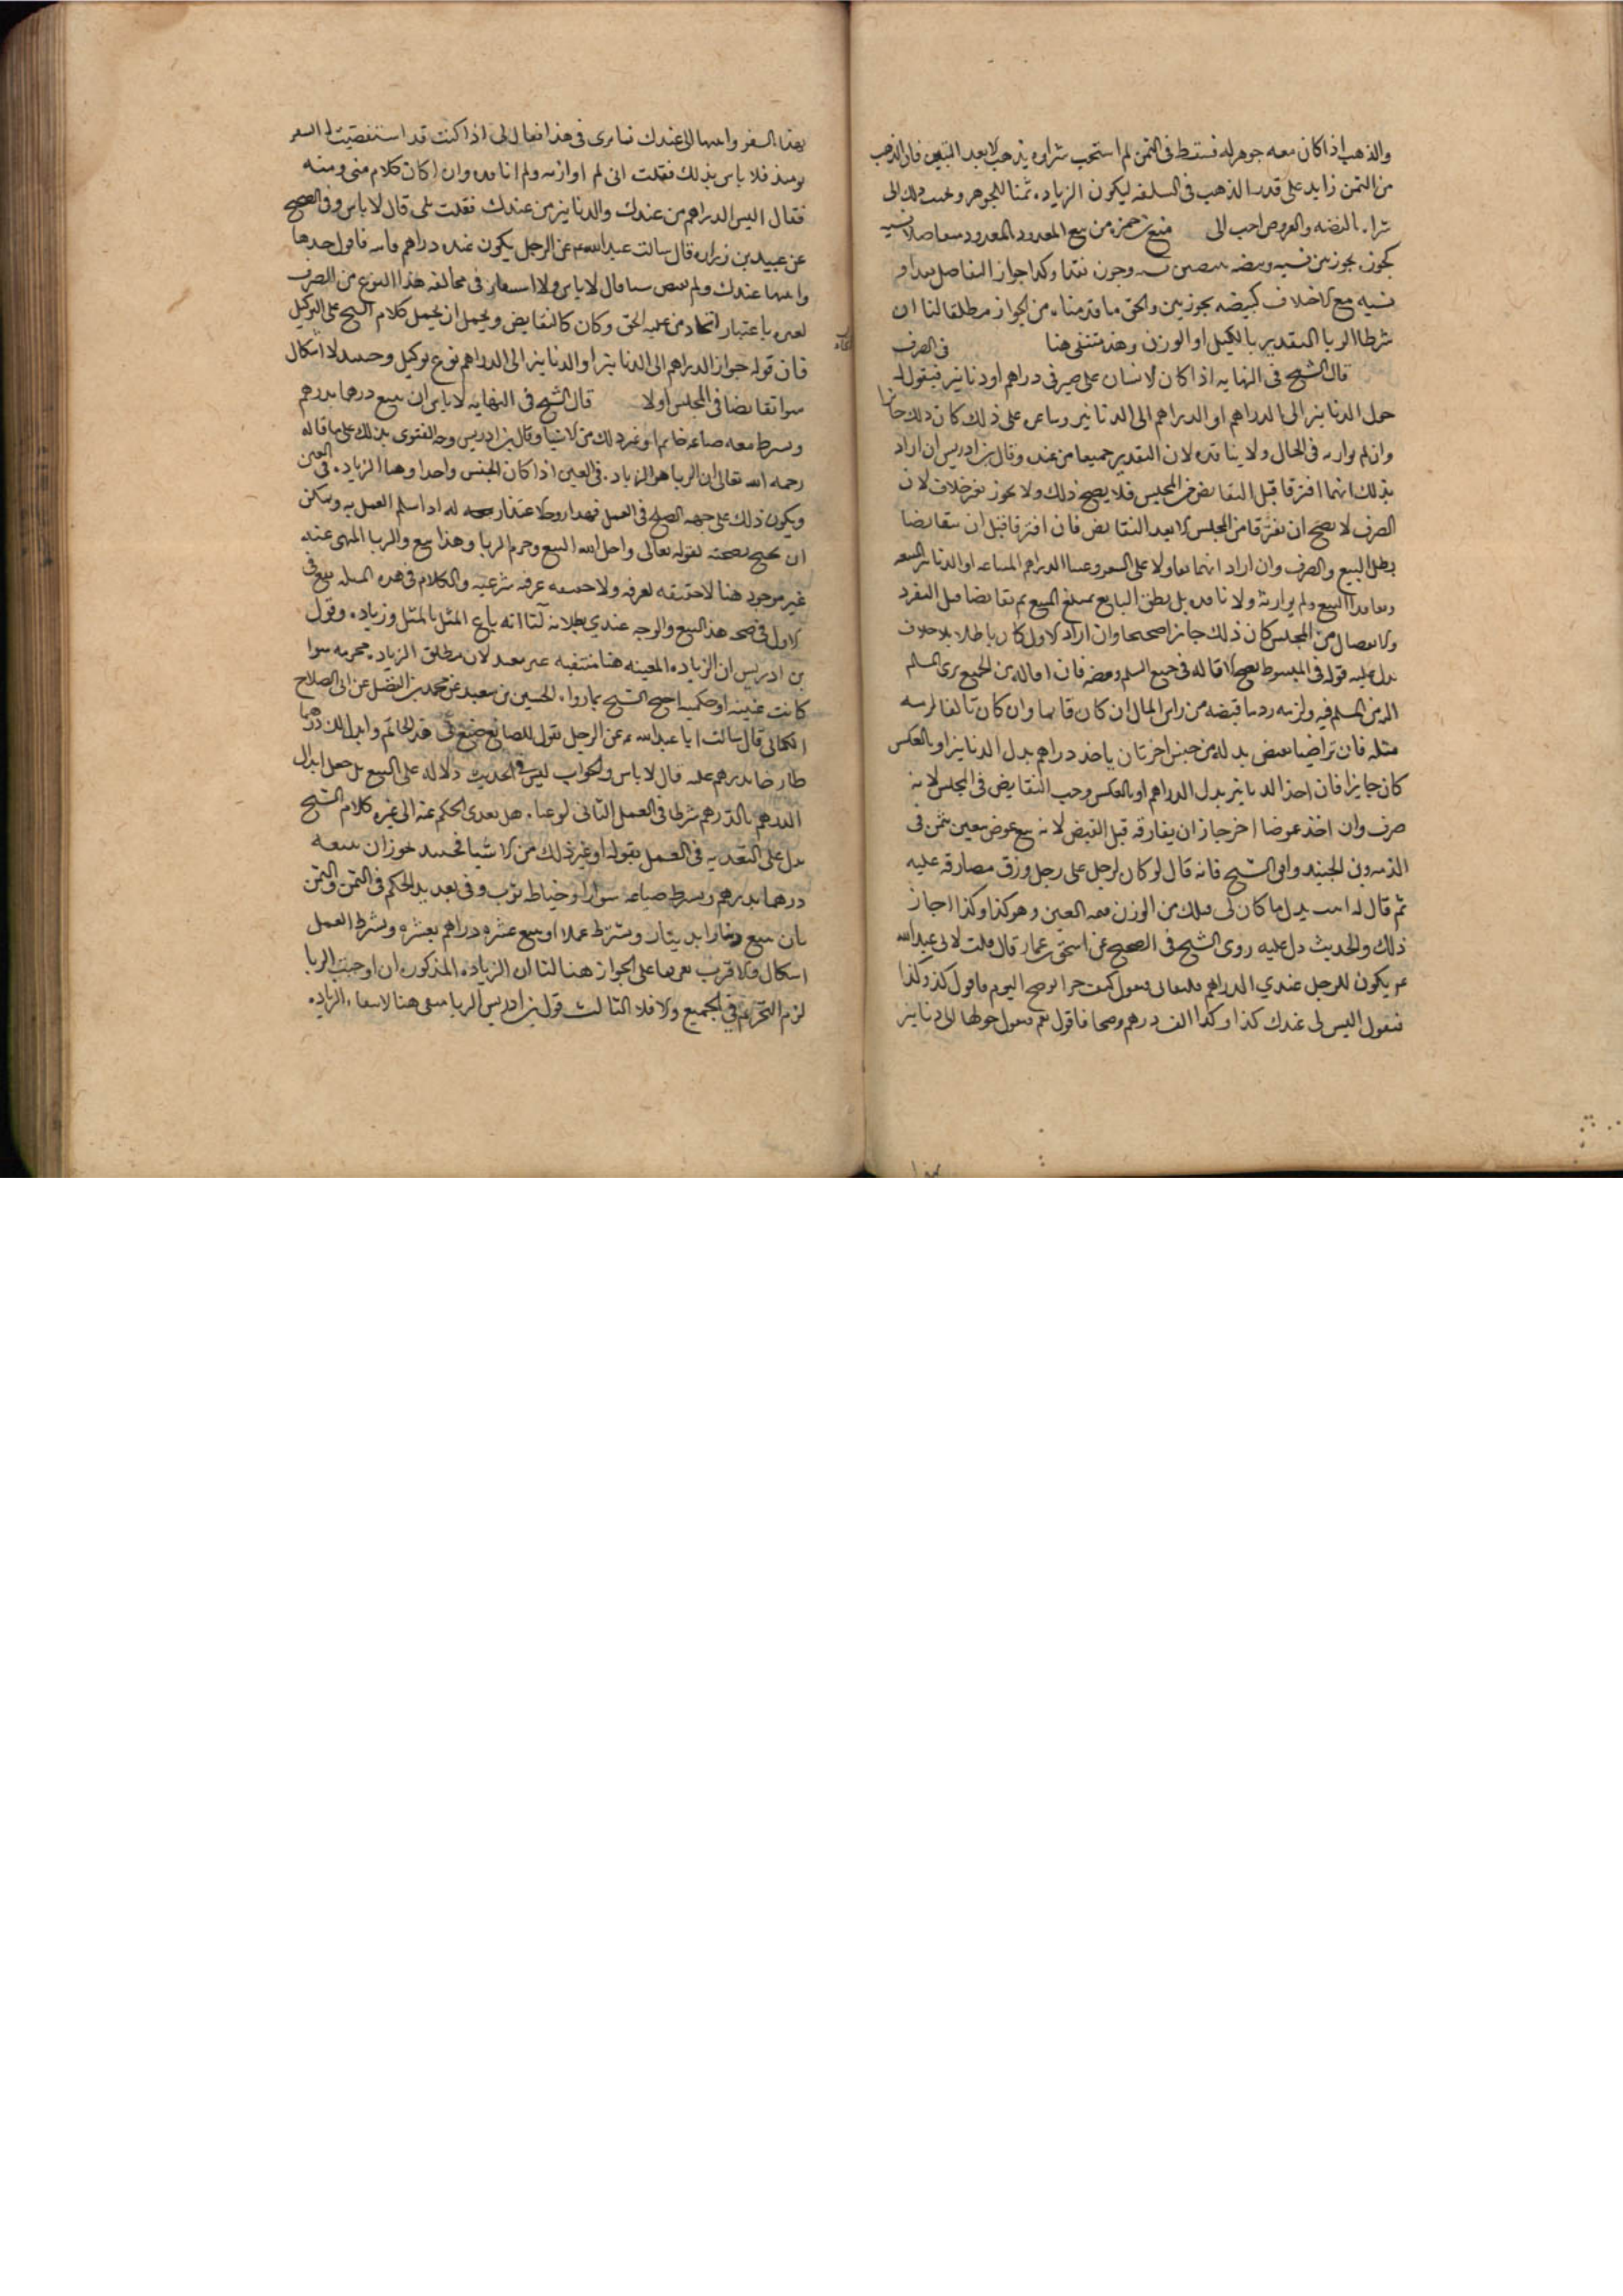 والذهب اذا كان معه جوهر له قسط فى الثمن لم استحب شراوه بذهب الا بعد التبيين فان الذهب
من الثمن زايد على قدر الذهب فى السلعه ليكون الزياده ثمنا للجوهر وبحسب ذلك الى
شراه بالفضه والعروض احب الى منع بن حمزه من بيع المعدود بالمعدود متفاضلا نسيه
كجوز بجوزتين نسيه وبيضه ببيضتين نسيه وجوزه نقدا وكذا جواز التفاضل نقدا و
نسيه مع الاختلاف كبيضه بجوزتين والحق ما قدمناه من الجواز مطلقا لنا ان
شرط الربا التقدير بالكيل او الوزن وهذ منتفى هنا فى الصرف
قال الشيخ فى النهايه اذا كان لانسان على صيرفى دراهم او دنانير فيقول له
حول الدنانير الى الدراهم او الدراهم الى الدنانير وساعره على ذلك كان ذلك جايزا
وان لم يوازنه فى الحال ولا يناقده لان التقدير جميعا من عنده وقال بن ادريس ان اراد
بذلك انهما افترقا قبل التقابض من المجلس فلا يصح ذلك ولا يجوز بغير خلاف لان
الصرف لا يصح ان يفترقا من المجلس الا بعد التقابض فان افترقا قبل ان يتقابضا
بطل البيع والصرف وان اراد انهما تقاولا على السعر وعينا الدراهم المبتاعه او الدنانير المبيعه
وتعاقدا البيع ولم يوازنه ولا ناقده بل نطق البايع بمبلغ المبيع ثم تقابضا قبل التفرق
والانفصال من المجلس كان ذلك جايزا صحيحا وان اراد الاول كان باطلا بلا خلاف
يدل عليه قوله فى المبسوط يصح الاقاله فى جميع السلم وبعضه فان اقاله من الجميع برى المسلم
اليه من المسلم فيه ولزمه رد ما قبضه من راس المال ان كان قايما وان كان تالفا لزمه
مثله فان تراضيا بقبض بدله من جنس اخر بان ياخذ دراهم بدل الدنانير او بالعكس
كان جايزا فان اخذ الدنانير بدل الدراهم او بالعكس وجب التقابض فى المجلس لانه
صرف وان اخذ عوضا اخر جاز ان يفارقه قبل القبض لانه بيع عوض معين بثمن فى
الذمه وبن الجنيد وافق الشيخ فانه قال لو كان لرجل على رجل ورق مصارفه عليه
ثم قال له اثبت بدل ما كان لى قبلك من الوزن معه العين وهو كذا وكذا اجاز
ذلك والحديث دل عليه روى الشيخ فى الصحيح عن اسحق بن عمار قال قلت لابى عبد الله
عم يكون للرجل عندي الدراهم فيلقانى فيقول كيف سعر الوضح اليوم فاقول كذا وكذا
فيقول اليس لى عندك كذا وكذا الف درهم وضحا فاقول نعم فيقول حولها الى دنانير
بهذا السعر واثبتها لى عندك فما ترى فى هذا فقال لى اذا كنت قد استقصيت له السعر
يومئذ فلا باس بذلك فقلت انى لم اوازنه ولم اناقده وانما كان كلام منى ومنه
فقال اليس الدراهم من عندك والدنانير من عندك فقلت بلى قال لا باس وفى الصحيح
عن عبيد بن زراره قال سالت عبد الله عم عن الرجل يكون عنده دراهم فاتيه فاقول خذها
واثبتها عندك ولم يقبض شيا قال لا باس ولا استبعاد فى مخالفه هذا النوع من الصرف
لغيره باعتبار اتحاد من عليه الحق وكان كالتقابض ويحمل ان يحمل كلام الشيخ على التوكيل
فان قوله حول الدراهم الى الدنانير او الدنانير الى الدراهم نوع توكيل وحينئذ لا اشكال
سوا تقابضا فى المجلس او لا قال الشيخ فى النهايه لا باس ان يبيع درهما بدرهم
ويشرط معه صياغه خاتم او غير ذلك من الاشيا وقال بن ادريس وجه الفتوى بذلك على ما قاله
رحمه الله تعالى ان الربا هو الزياده فى العين اذا كان الجنس واحدا وهنا الزياده فى العين
ويكون ذلك على جهه الصلح فى العمل فهذا وجه الاعتذار له اذا سلم العمل به ويمكن
ان يحتج بصحته لقوله تعالى واحل الله البيع وحرم الربا وهذا بيع والربا المنهى عنه
غير موجود هنا لا حقيقه لغويه ولا حقيقه عرفيه شرعيه والكلام فى هذه المسله يقع فى
الاول فى صحه هذا البيع والوجه عندي بطلانه لنا انه باع المثل بالمثل وزياده وقول
بن ادريس ان الزياده المعينه هنا منتفيه غير مفيد لان مطلق الزياده محرمه سوا
كانت عينيه او حكميه احتج الشيخ بما رواه الحسين بن سعيد عن محمد بن الفضل عن ابى الصلاح
الكنانى قال سالت ابا عبد الله عم عن الرجل يقول للصايغ صنع لى هذا الخاتم وابدل لك درهما
طازجا بدرهم غله قال لا باس والجواب ليس فى الحديث دلاله على البيع بل جعل ابدال
الدرهم بالدرهم شرطا فى العمل الثانى لو عينا هل يعدى الحكم عنه الى غيره كلام الشيخ
يدل على التعديه فى العمل بقوله او غير ذلك من الاشيا فحينئذ يجوز ان يبيعه
درهما بدرهم ويشرط صياغه سوار او خياطه ثوب وفى تعديه الحكم فى الثمن والثمن
بان يبيع دينارا بدينار ويشترط عملا او يبيع عشره دراهم بعشره ويشرط العمل
اشكال والاقرب تفريعا على الجواز هنا لنا ان الزياده المذكوره ان اوجبت الربا
لزم التحريم فى الجميع والا فلا الثالث قول بن ادريس الربا منفى هنا لانتفاء الزياده